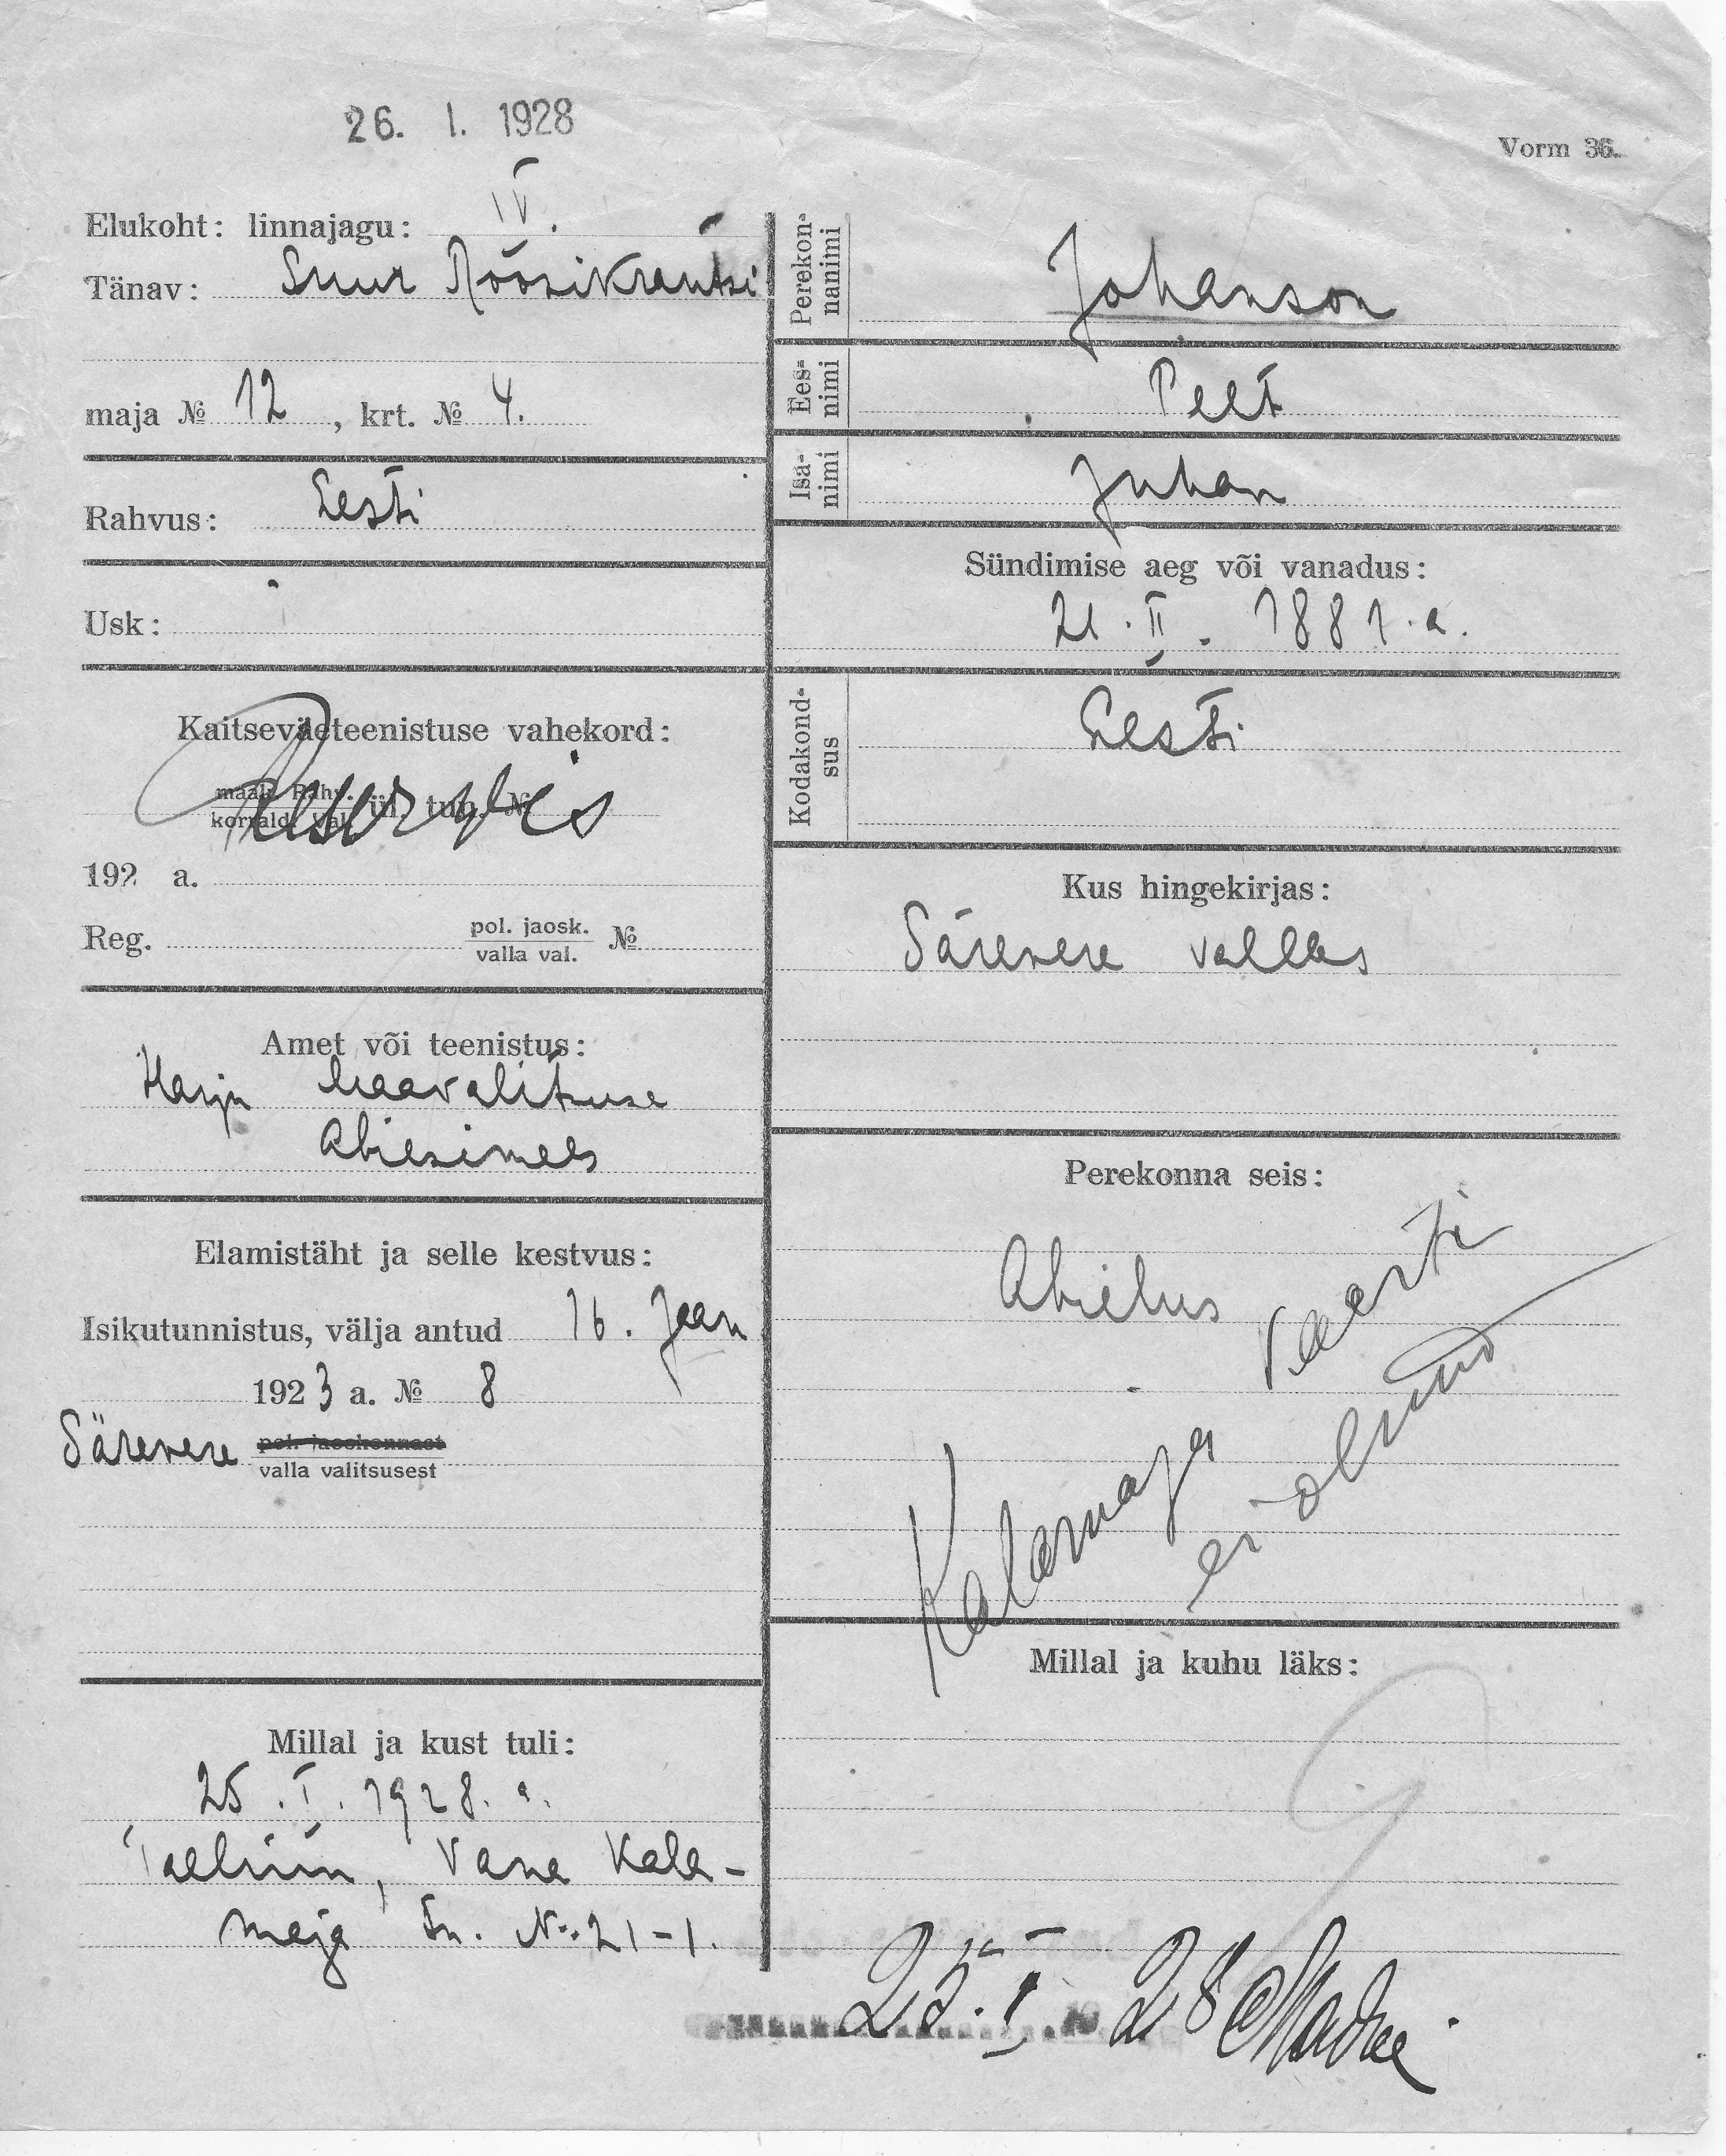 26. I. 1928
Vorm 36.
Elukoht: linnajagu: IV.
Tänav: Suur Roosikrantsi
maja № 12, krt. № 4.
Rahvus: Eesti
Usk:
Kaitseväeteenistuse vahekord:
Reservis
192 a.
Reg. pol. jaosk. / valla val. №
Amet või teenistus:
Harju Maavalitsuse
Abiesimees
Elamistäht ja selle kestvus:
Isikutunnistus, välja antud 16. Jaan
1923 a. № 8
Särevere pol. jaoskonnast
valla valitsusest
Millal ja kust tuli:
25. I. 1928. a.
Tallinn, Vana Kala-
maja tn. No. 21-1.
Perekon-
nanimi
Johanson
Ees-
nimi
Peet
Isa-
nimi
Juhan
Sündimise aeg või vanadus:
21. II. 1881. a.
Kodakond-
sus
Eesti
Kus hingekirjas:
Särevere vallas
Perekonna seis:
Abielus
Kalamaja kaarti
ei olnud
Millal ja kuhu läks:
25. I 28